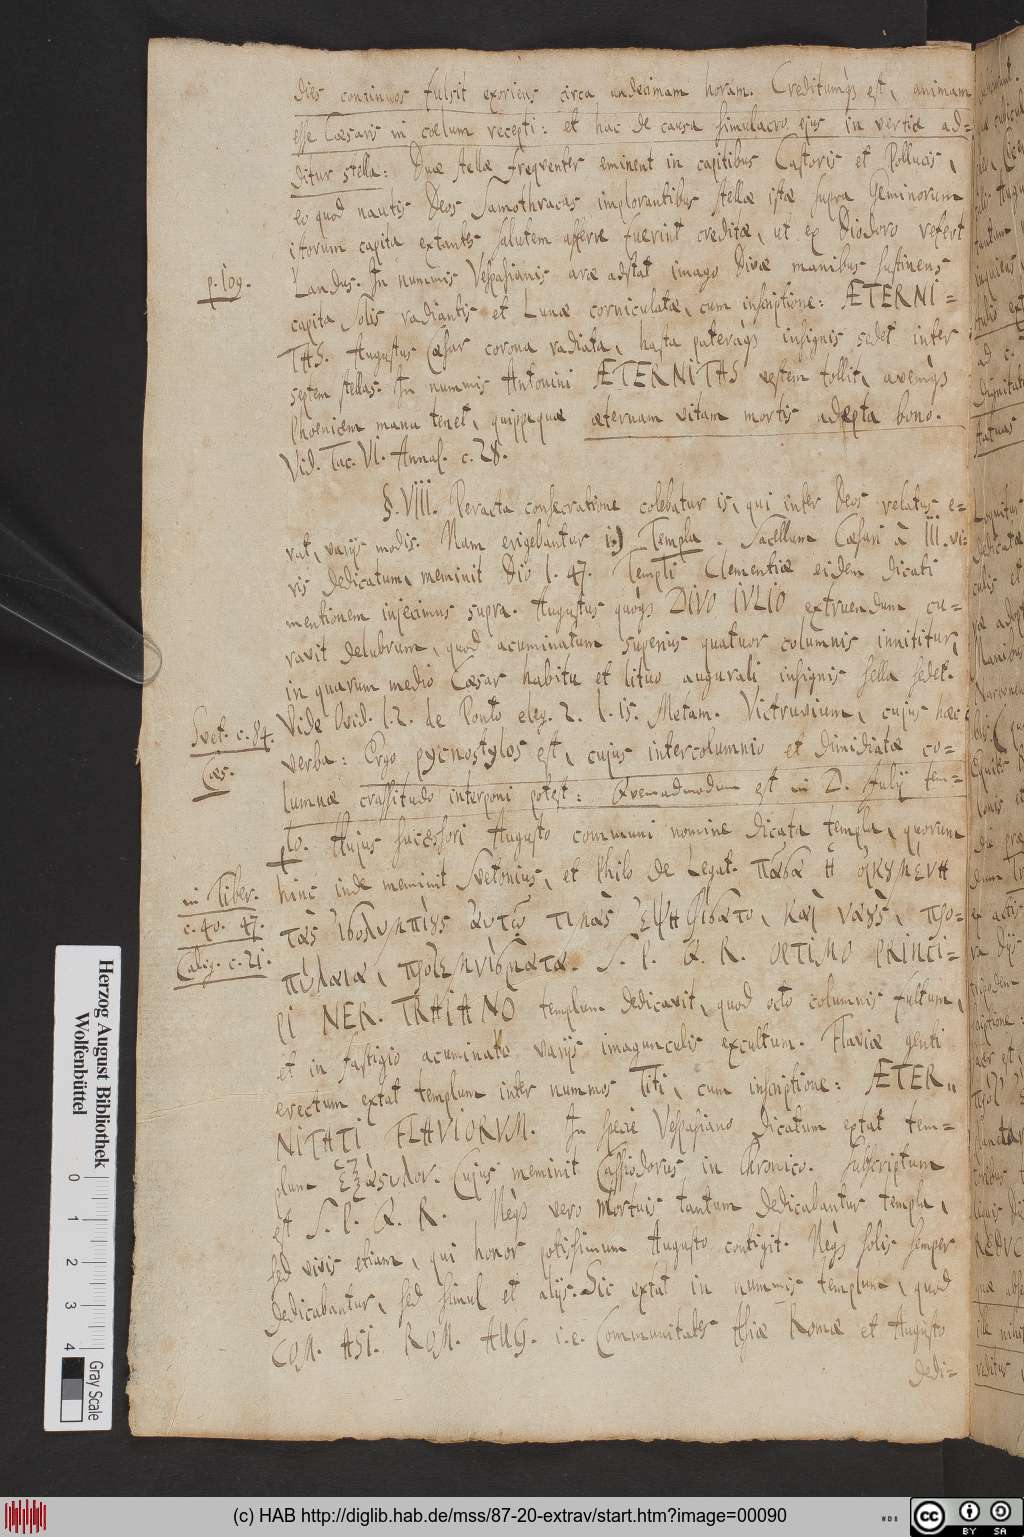 dies continuos fulsit exoriens circa undecimam horam. Creditumqs est, animam
esse Cæsaris in coelum recepti: et hac de causa simulacro ejus in vertice ad=
ditur stella: Duæ stellæ frequenter eminent in capitibus Castoris et Pollucis,
eo quod nautis Deos Samothracas implorantibus stellæ istæ supra Geminorum
istorum capita extantes salutem afferre fuerint creditæ, ut ex Diodoro refert
p. 109.
Landus. In nummis Vespasianis aræ adstat imago Divæ manibus sustinens
capita Solis radiantis et Lunæ corniculatæ, cum inscriptione: ÆTERNI=
TAS. Augustus Cæsar corona radiata, hasta pateraqs insignis sedet inter
septem stellas. In nummis Antonini ÆTERNITAS vestem tollit, avemqs
Phoenicem manu tenet, quippe quæ æternam vitam mortis adepta bono.
Vid. Tac. VI. Annal. c. 28.
§. VIII. Peracta consecratione colebatur is, qui inter Deos relatus e=
rat, varijs modis. Nam erigebantur 1.) Templa. Sacellum Cæsari à III. vi=
ris dedicatum, meminit Dio l. 47. Templi Clementiæ eidem dicati
mentionem injecimus supra. Augustus quoqs DIVO IVLIO extruendum cu=
ravit delubrum, quod acuminatum superius quatuor columnis innititur,
in quarum medio Cæsar habitu et lituo augurali insignis sella sedet.
Svet. c. 84.
Cæs.
Vide Ovid. l. 2. de Ponto eleg. 2. l. 15. Metam. Vitruvium, cujus hæc
verba: Ergo pycnostylos est, cujus intercolumnio et dimidiatæ co=
lumnæ crassitudo interponi potest: Quemadmodum est in D. Julij tem=
plo. Hujus successori Augusto communi nomine dicata templa, quorum
in Tiber.
c. 40. 47.
Calig. c. 21.
hinc inde meminit Svetonius, et Philo de Legat. πᾶσα ἡ οἰκουμένη
τὰς ἰσολυμπίους αὐτῷ τιμὰς ἐψηφίσατο, καὶ ναούς, προ=
πύλαια, προτεμνίσματα. S. P. Q. R. OPTIMO PRINCI=
PI NER. TRAIANO templum dedicavit, quod octo columnis fultum,
et in fastigio acuminato varijs imagunculis excultum. Flaviæ genti
erectum extat templum inter nummos Titi, cum inscriptione: ÆTER=
NITATI FLAVIORVM. In specie Vespasiano dicatum extat tem=
plum ἑξάστυλον. Cujus meminit Cassiodorus in Chronico. Subscriptum
est S. P. Q. R. Neqs vero mortuis tantum dedicabantur templa,
sed vivis etiam, qui honor potissimum Augusto contigit. Neqs solis semper
dedicabantur, sed simul et alijs. Sic extat in nummis templum, quod
COM. ASI. ROM. AUG. i.e. Communitates Asiæ Romæ et Augusto
dedi=
Herzog August Bibliothek
Wolfenbüttel
0 1 2 3 4
Gray Scale
(c) HAB http://diglib.hab.de/mss/87-20-extrav/start.htm?image=00090
cc BY SA